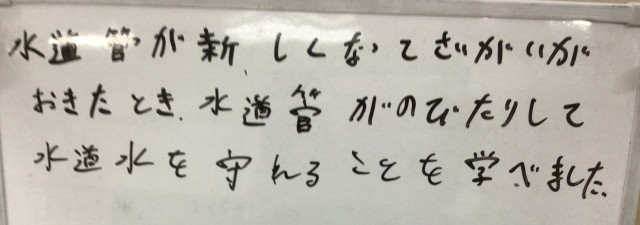 水道管が新しくなってさいがいが
おきたとき、水道管がのびたりして
水道水を守れることを学べました。